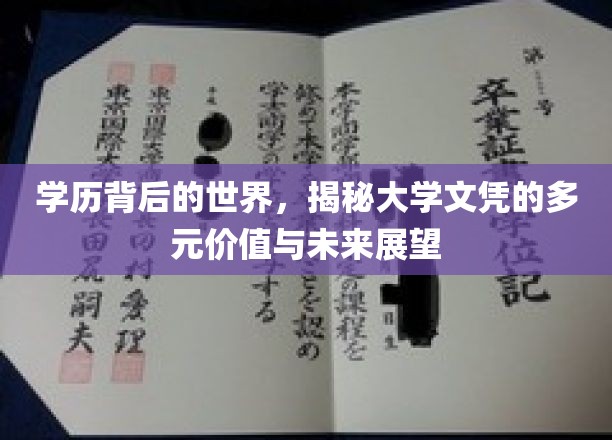 学历背后的世界，揭秘大学文凭的多
元价值与未来展望
第 号
卒業証 学位記
日生
本学商学部 定の課程を
修めて本学 ことを認め
学士(商学)の学 する
平成
東京国際大学 村愛理
東京国際大学長田尻嗣夫